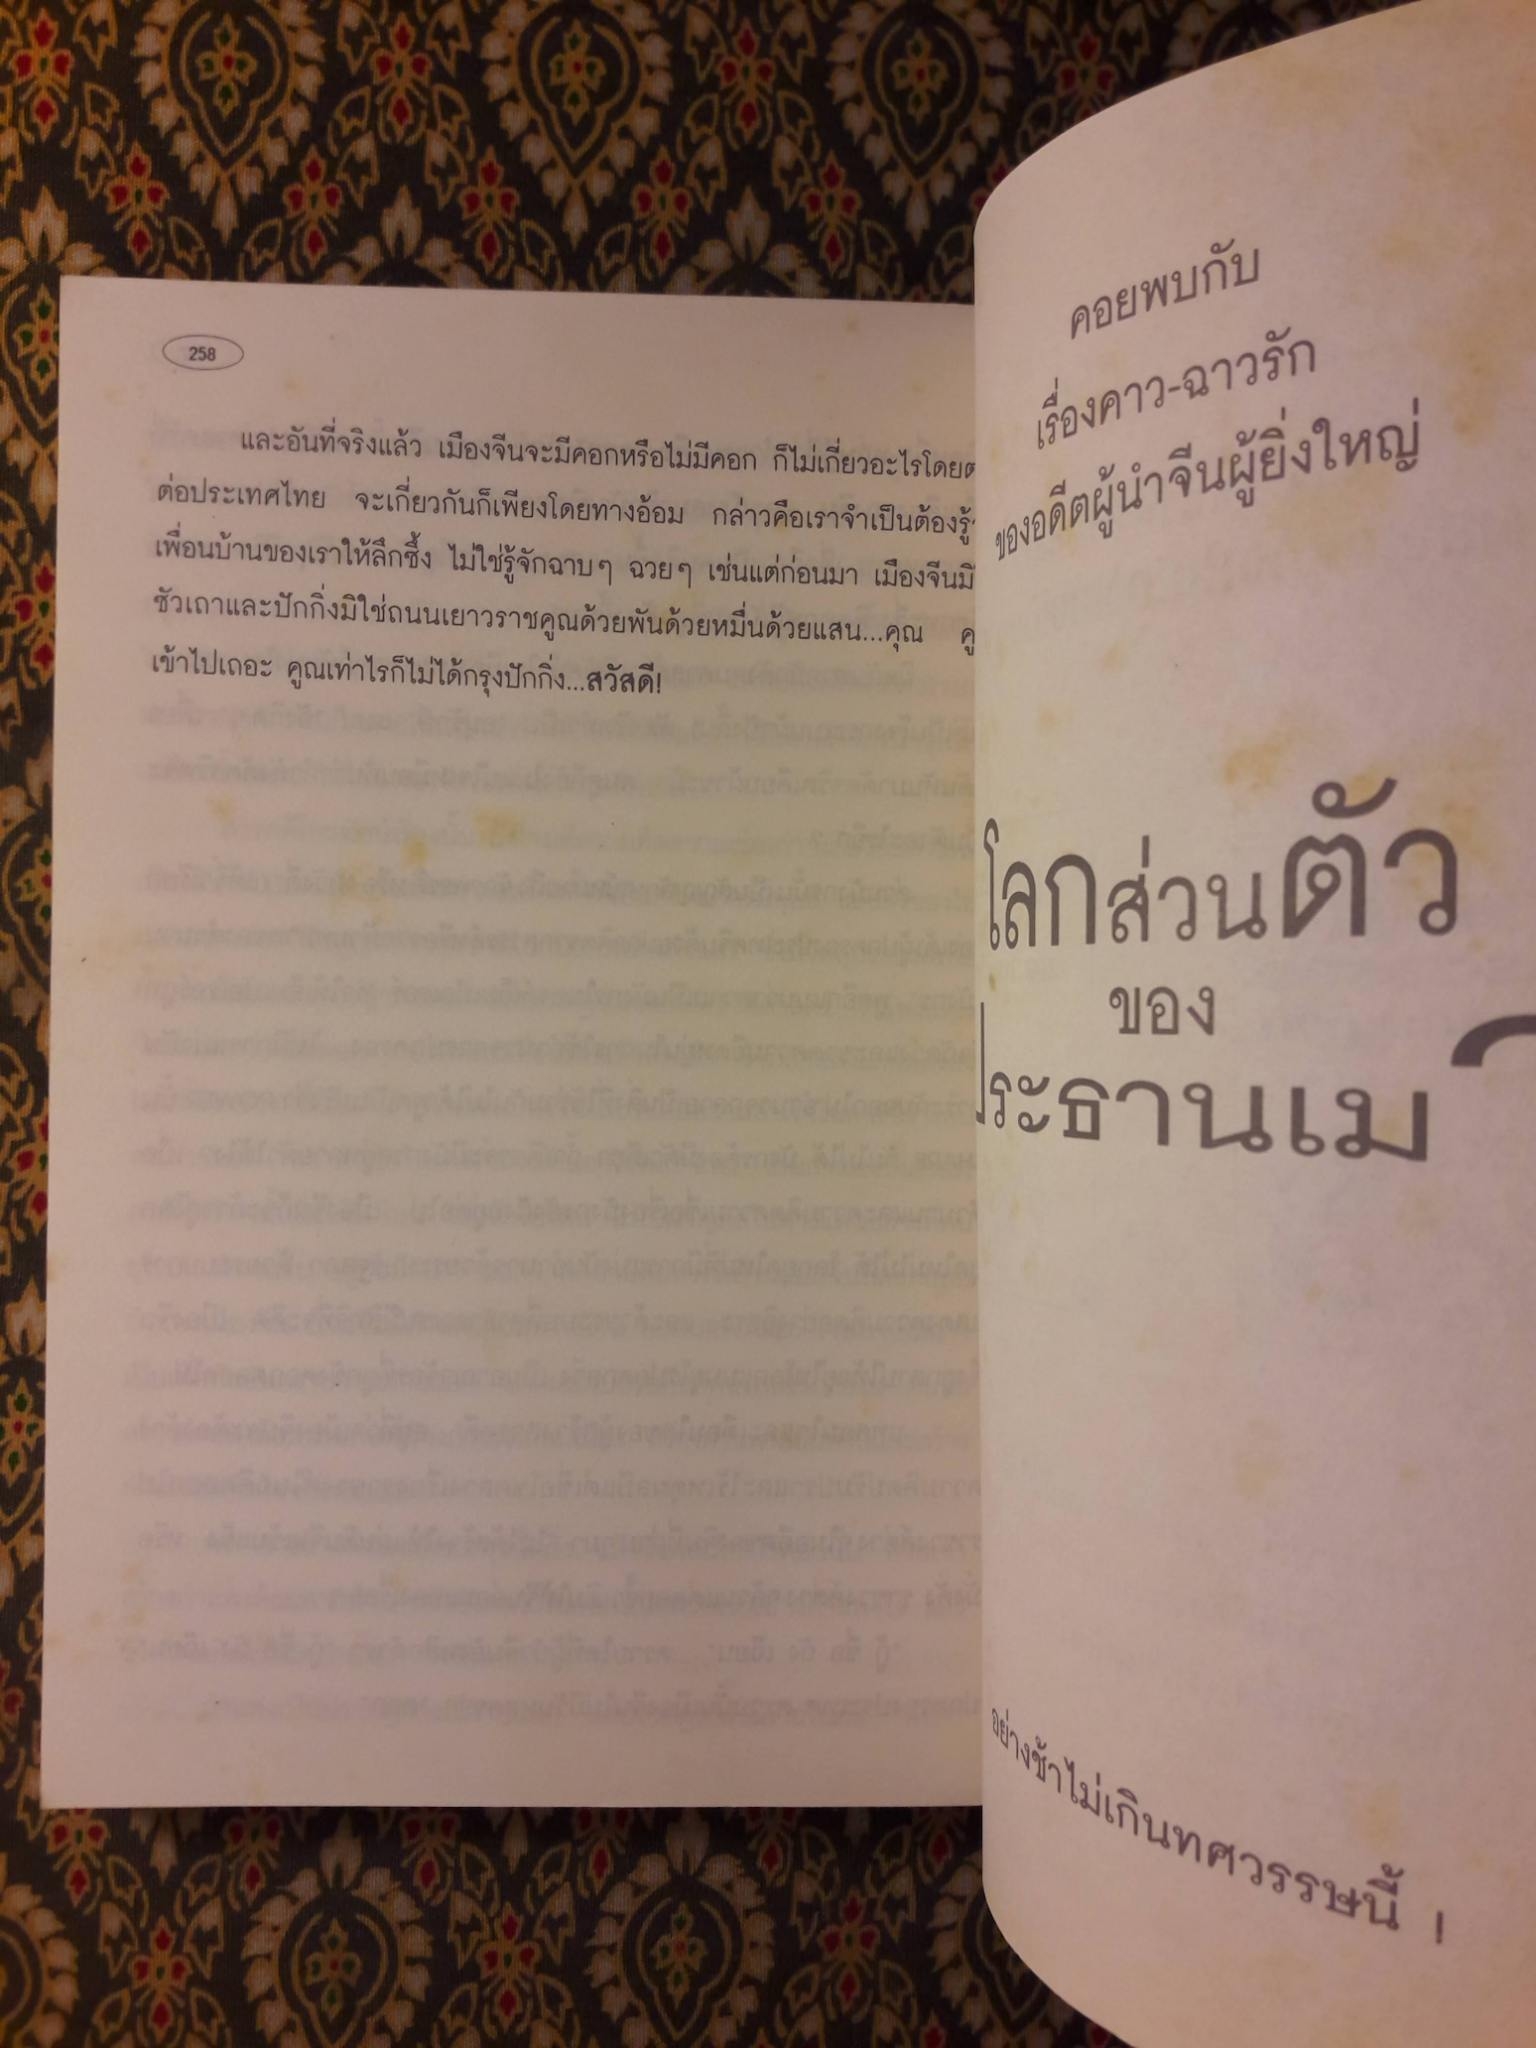 258
และอันที่จริงแล้ว เมืองจีนจะมีคอกหรือไม่มีคอก ก็ไม่เกี่ยวอะไรโดยต
ต่อประเทศไทย จะเกี่ยวกันก็เพียงโดยทางอ้อม กล่าวคือเราจำเป็นต้องรู้
เพื่อนบ้านของเราให้ลึกซึ้ง ไม่ใช่รู้จักฉาบๆ ฉวยๆ เช่นแต่ก่อนมา เมืองจีนมิ
ซัวเถาและปักกิ่งมิใช่ถนนเยาวราชคูณด้วยพันด้วยหมื่นด้วยแสน...คุณ คู
เข้าไปเถอะ คูณเท่าไรก็ไม่ได้กรุงปักกิ่ง...สวัสดี!
คอยพบกับ
เรื่องคาว-ฉาวรัก
ของอดีตผู้นำจีนผู้ยิ่งใหญ่
โลกส่วนตัว
ของ
ประธานเม
อย่างช้าไม่เกินทศวรรษนี้ !